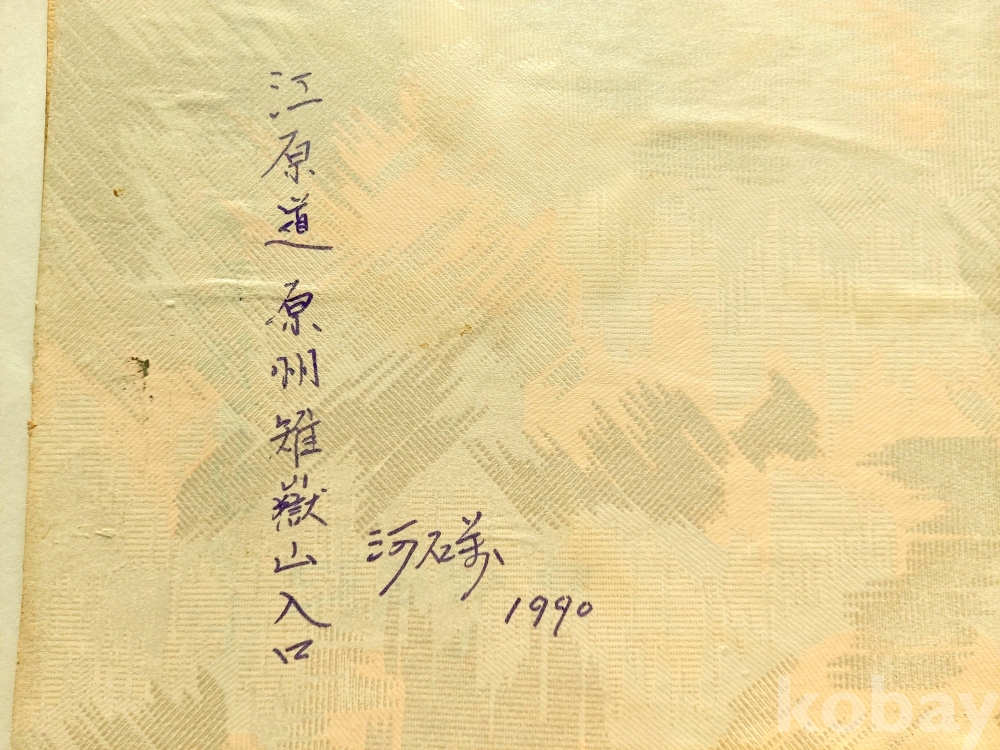 江原道 原州雉嶽山入口
河石
1990
kobay